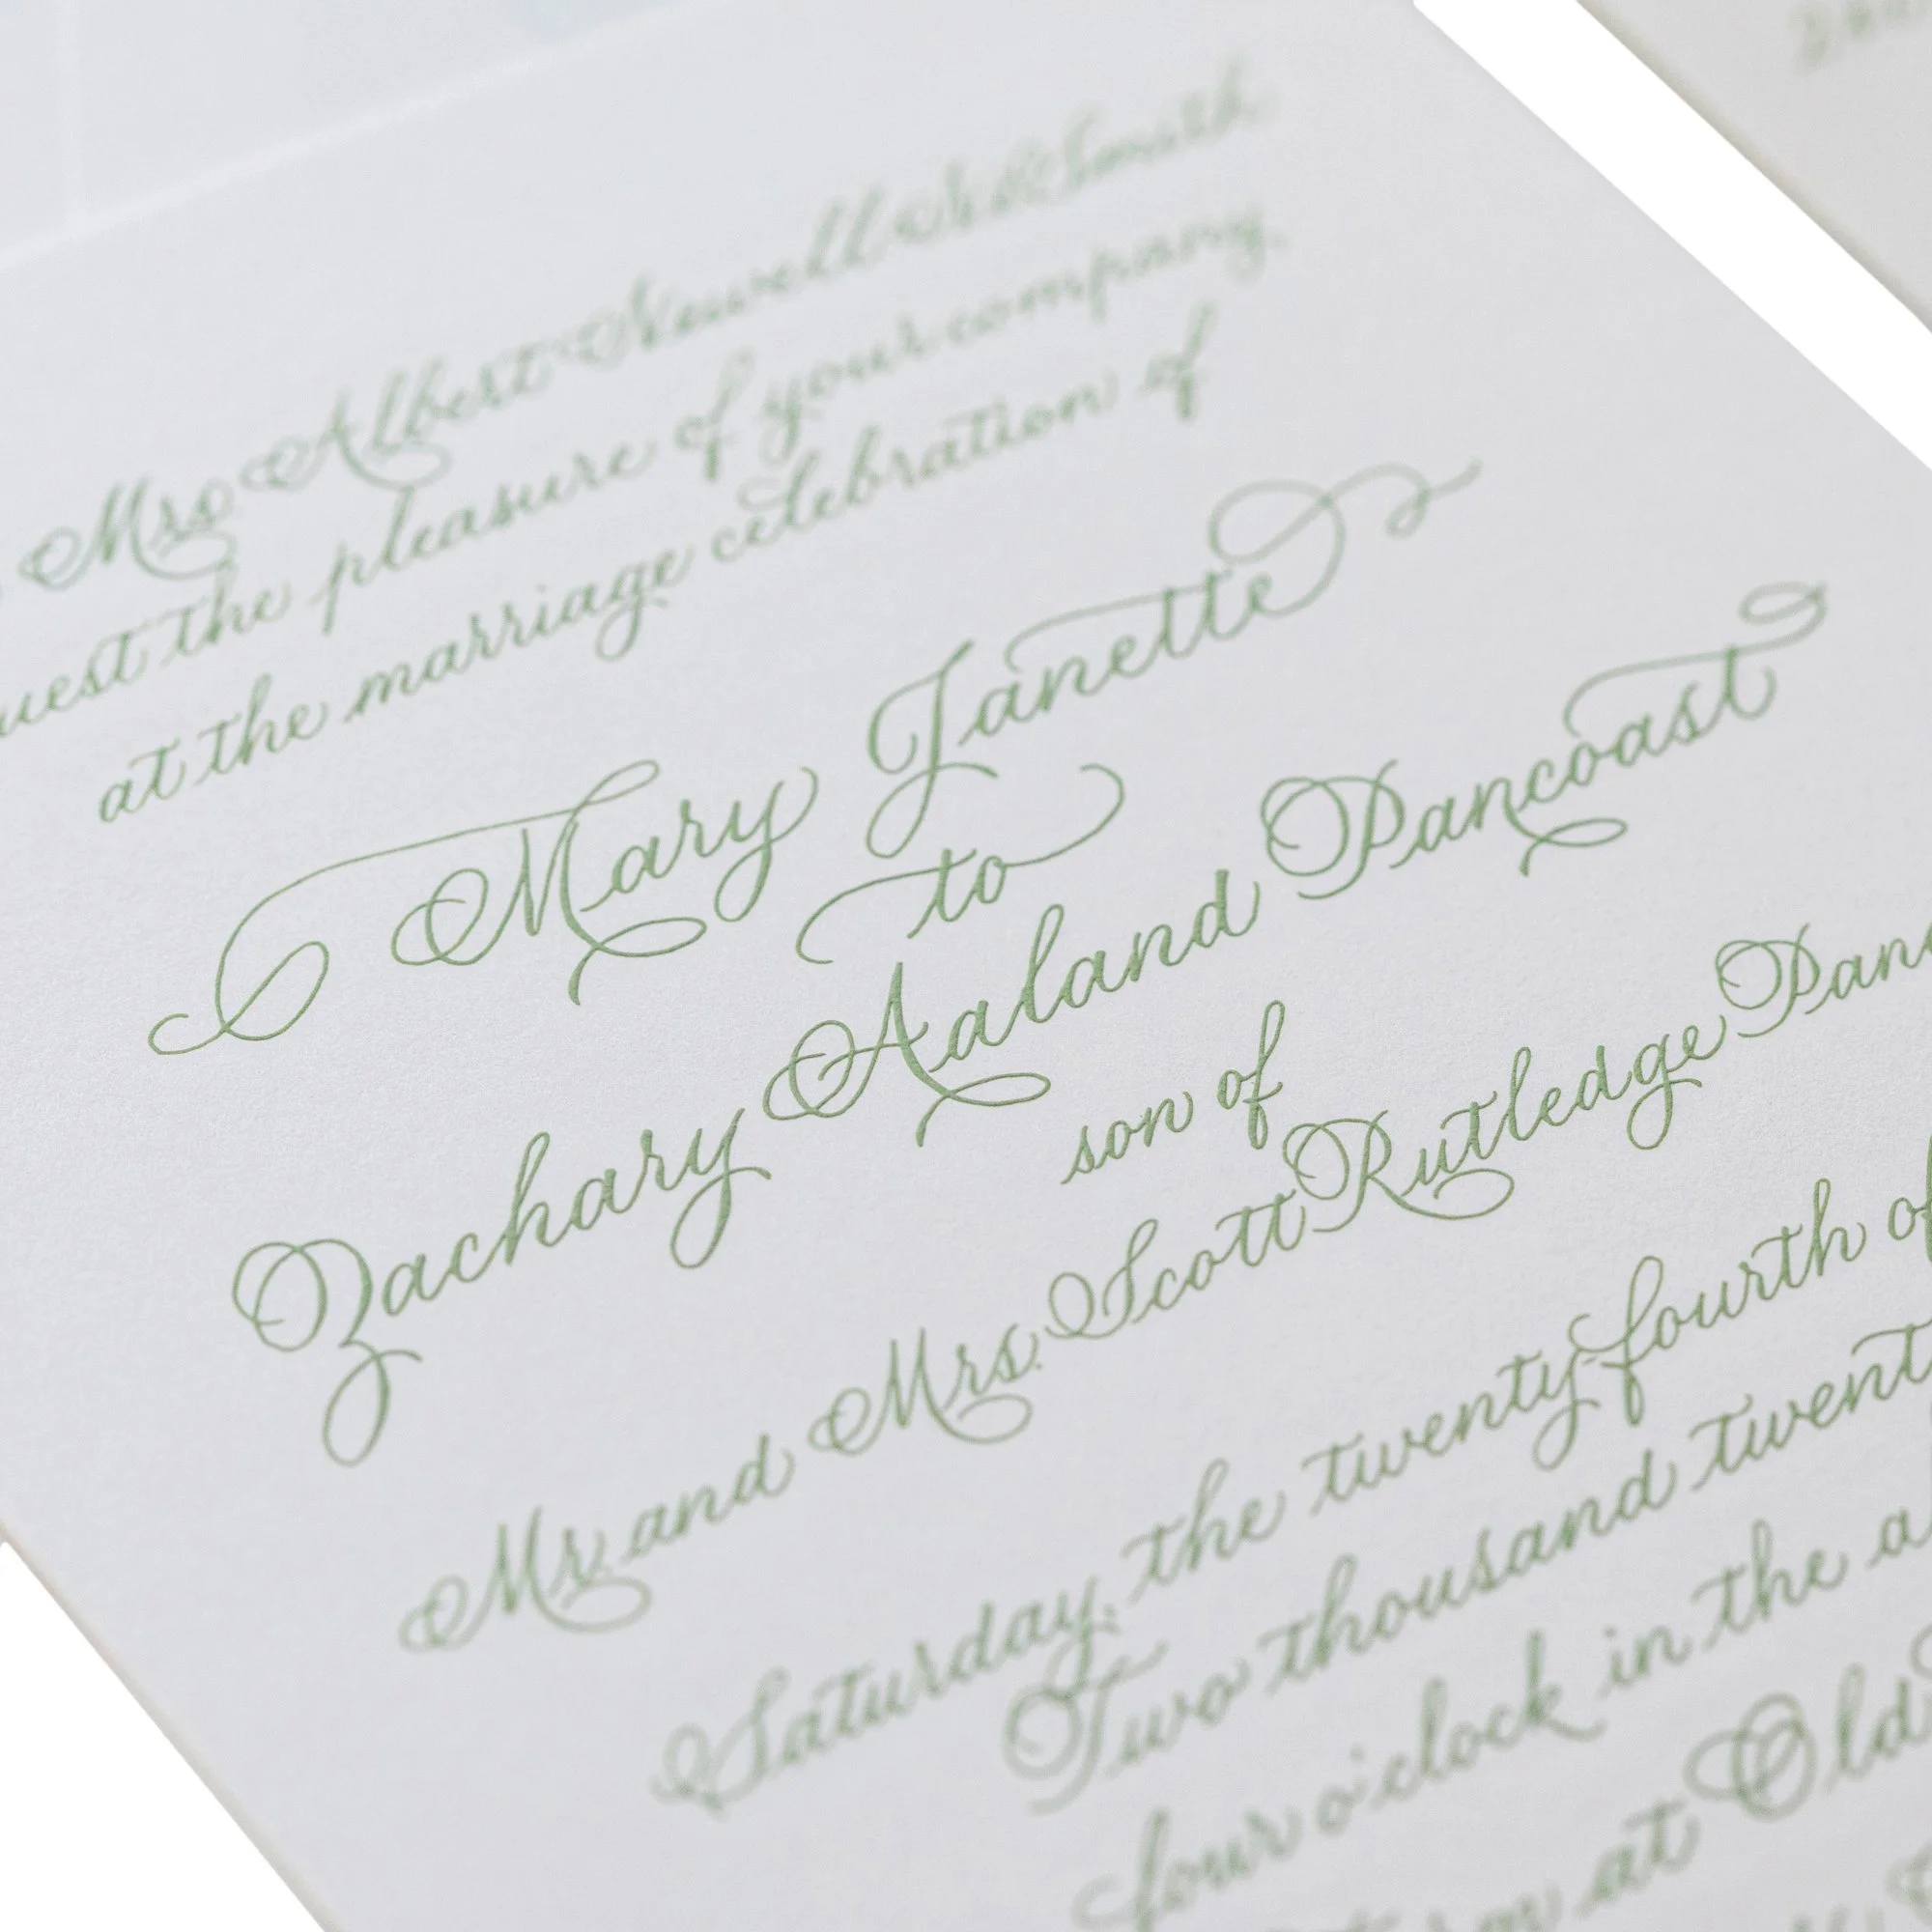 Mrs. Albert Newell Smith
the pleasure of your company
at the marriage celebration of
Mary Janette
to
Zachary Aaland Pancoast
son of
Mr. and Mrs. Scott Rutledge
Saturday, the twenty-fourth
Two thousand
four o'clock in the
at